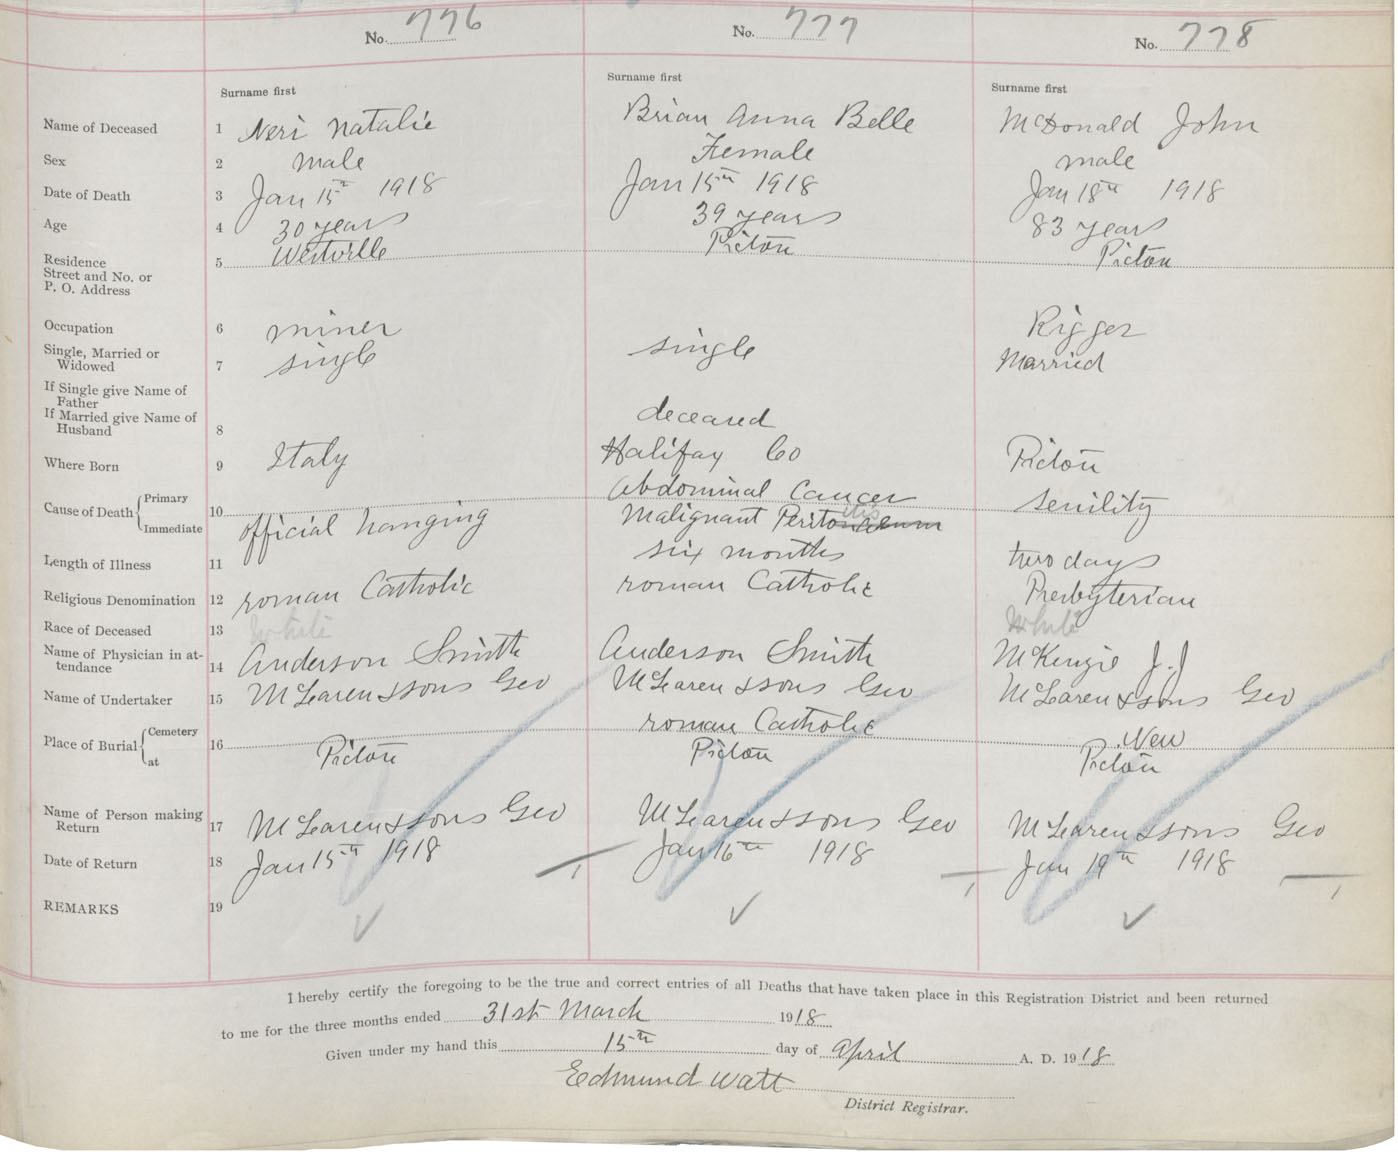 No. 776 No. 777 No. 778
Surname first Surname first Surname first
Name of Deceased 1 Neri Natalie Brian Anna Belle McDonald John
Sex 2 male Female male
Date of Death 3 Jan 15th 1918 Jan 15th 1918 Jan 18th 1918
Age 4 30 years 39 years 83 years
Residence 5 Westville Pictou Pictou
Street and No. or
P. O. Address
Occupation 6 miner Rigger
Single, Married or
Widowed 7 single single Married
If Single give Name of
Father
If Married give Name of
Husband 8 deceased
Where Born 9 Italy Halifax Co Pictou
Cause of Death { Primary 10 Abdominal Cancer senility
Immediate official hanging Malignant Peritonitis
Length of Illness 11 six months two days
Religious Denomination 12 roman Catholic roman Catholic Presbyterian
Race of Deceased 13 White White
Name of Physician in at-
tendance 14 Anderson Smith Anderson Smith McKenzie J.J
Name of Undertaker 15 McLaren & sons Geo McLaren & sons Geo McLaren & sons Geo
Place of Burial { Cemetery 16 roman Catholic New
at Pictou Pictou Pictou
Name of Person making
Return 17 McLaren & sons Geo McLaren & sons Geo McLaren & sons Geo
Date of Return 18 Jan 15th 1918 Jan 16th 1918 Jan 19th 1918
REMARKS 19
I hereby certify the foregoing to be the true and correct entries of all Deaths that have taken place in this Registration District and been returned
to me for the three months ended 31st March 1918
Given under my hand this 15th day of April A. D. 1918
Edmund Watt
District Registrar.